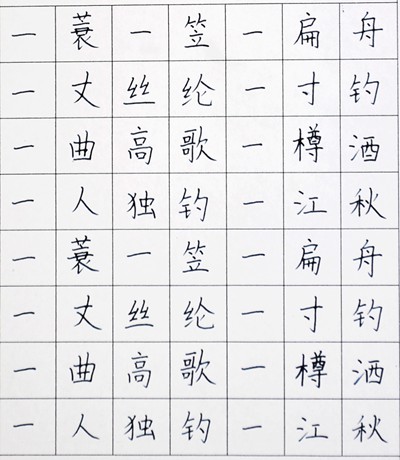 一蓑一笠一扁舟
一丈丝纶一寸钓
一曲高歌一樽酒
一人独钓一江秋
一蓑一笠一扁舟
一丈丝纶一寸钓
一曲高歌一樽酒
一人独钓一江秋